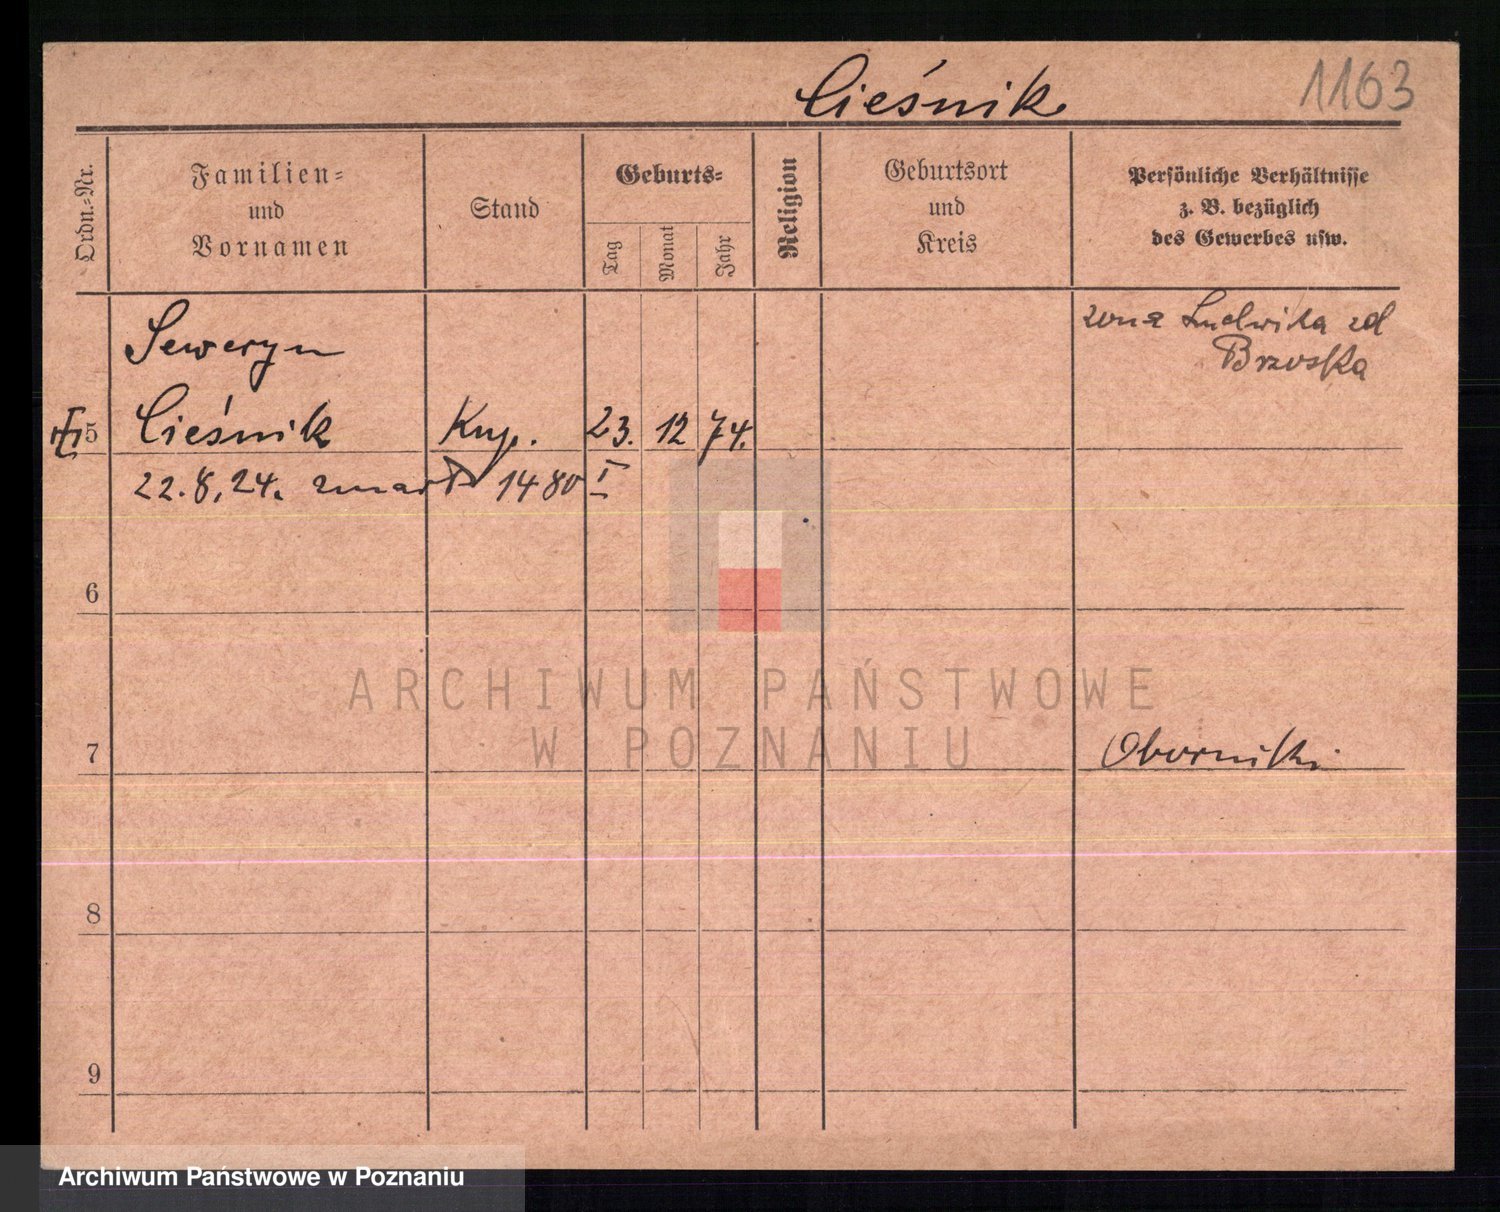 Cieśnik 1163
Ordn.-Nr.
Familien-
und
Vornamen
Stand
Geburts-
Tag
Monat
Jahr
Religion
Geburtsort
und
Kreis
Persönliche Verhältnisse
z. B. bezüglich
des Gewerbes usw.
Seweryn
żona Ludwika zd
Brzoska
5 Cieśnik Kup. 23. 12 74.
22.8.24. zmarł 1480 I
6
7 Oborniki
8
9
ARCHIWUM PAŃSTWOWE
W POZNANIU
Archiwum Państwowe w Poznaniu